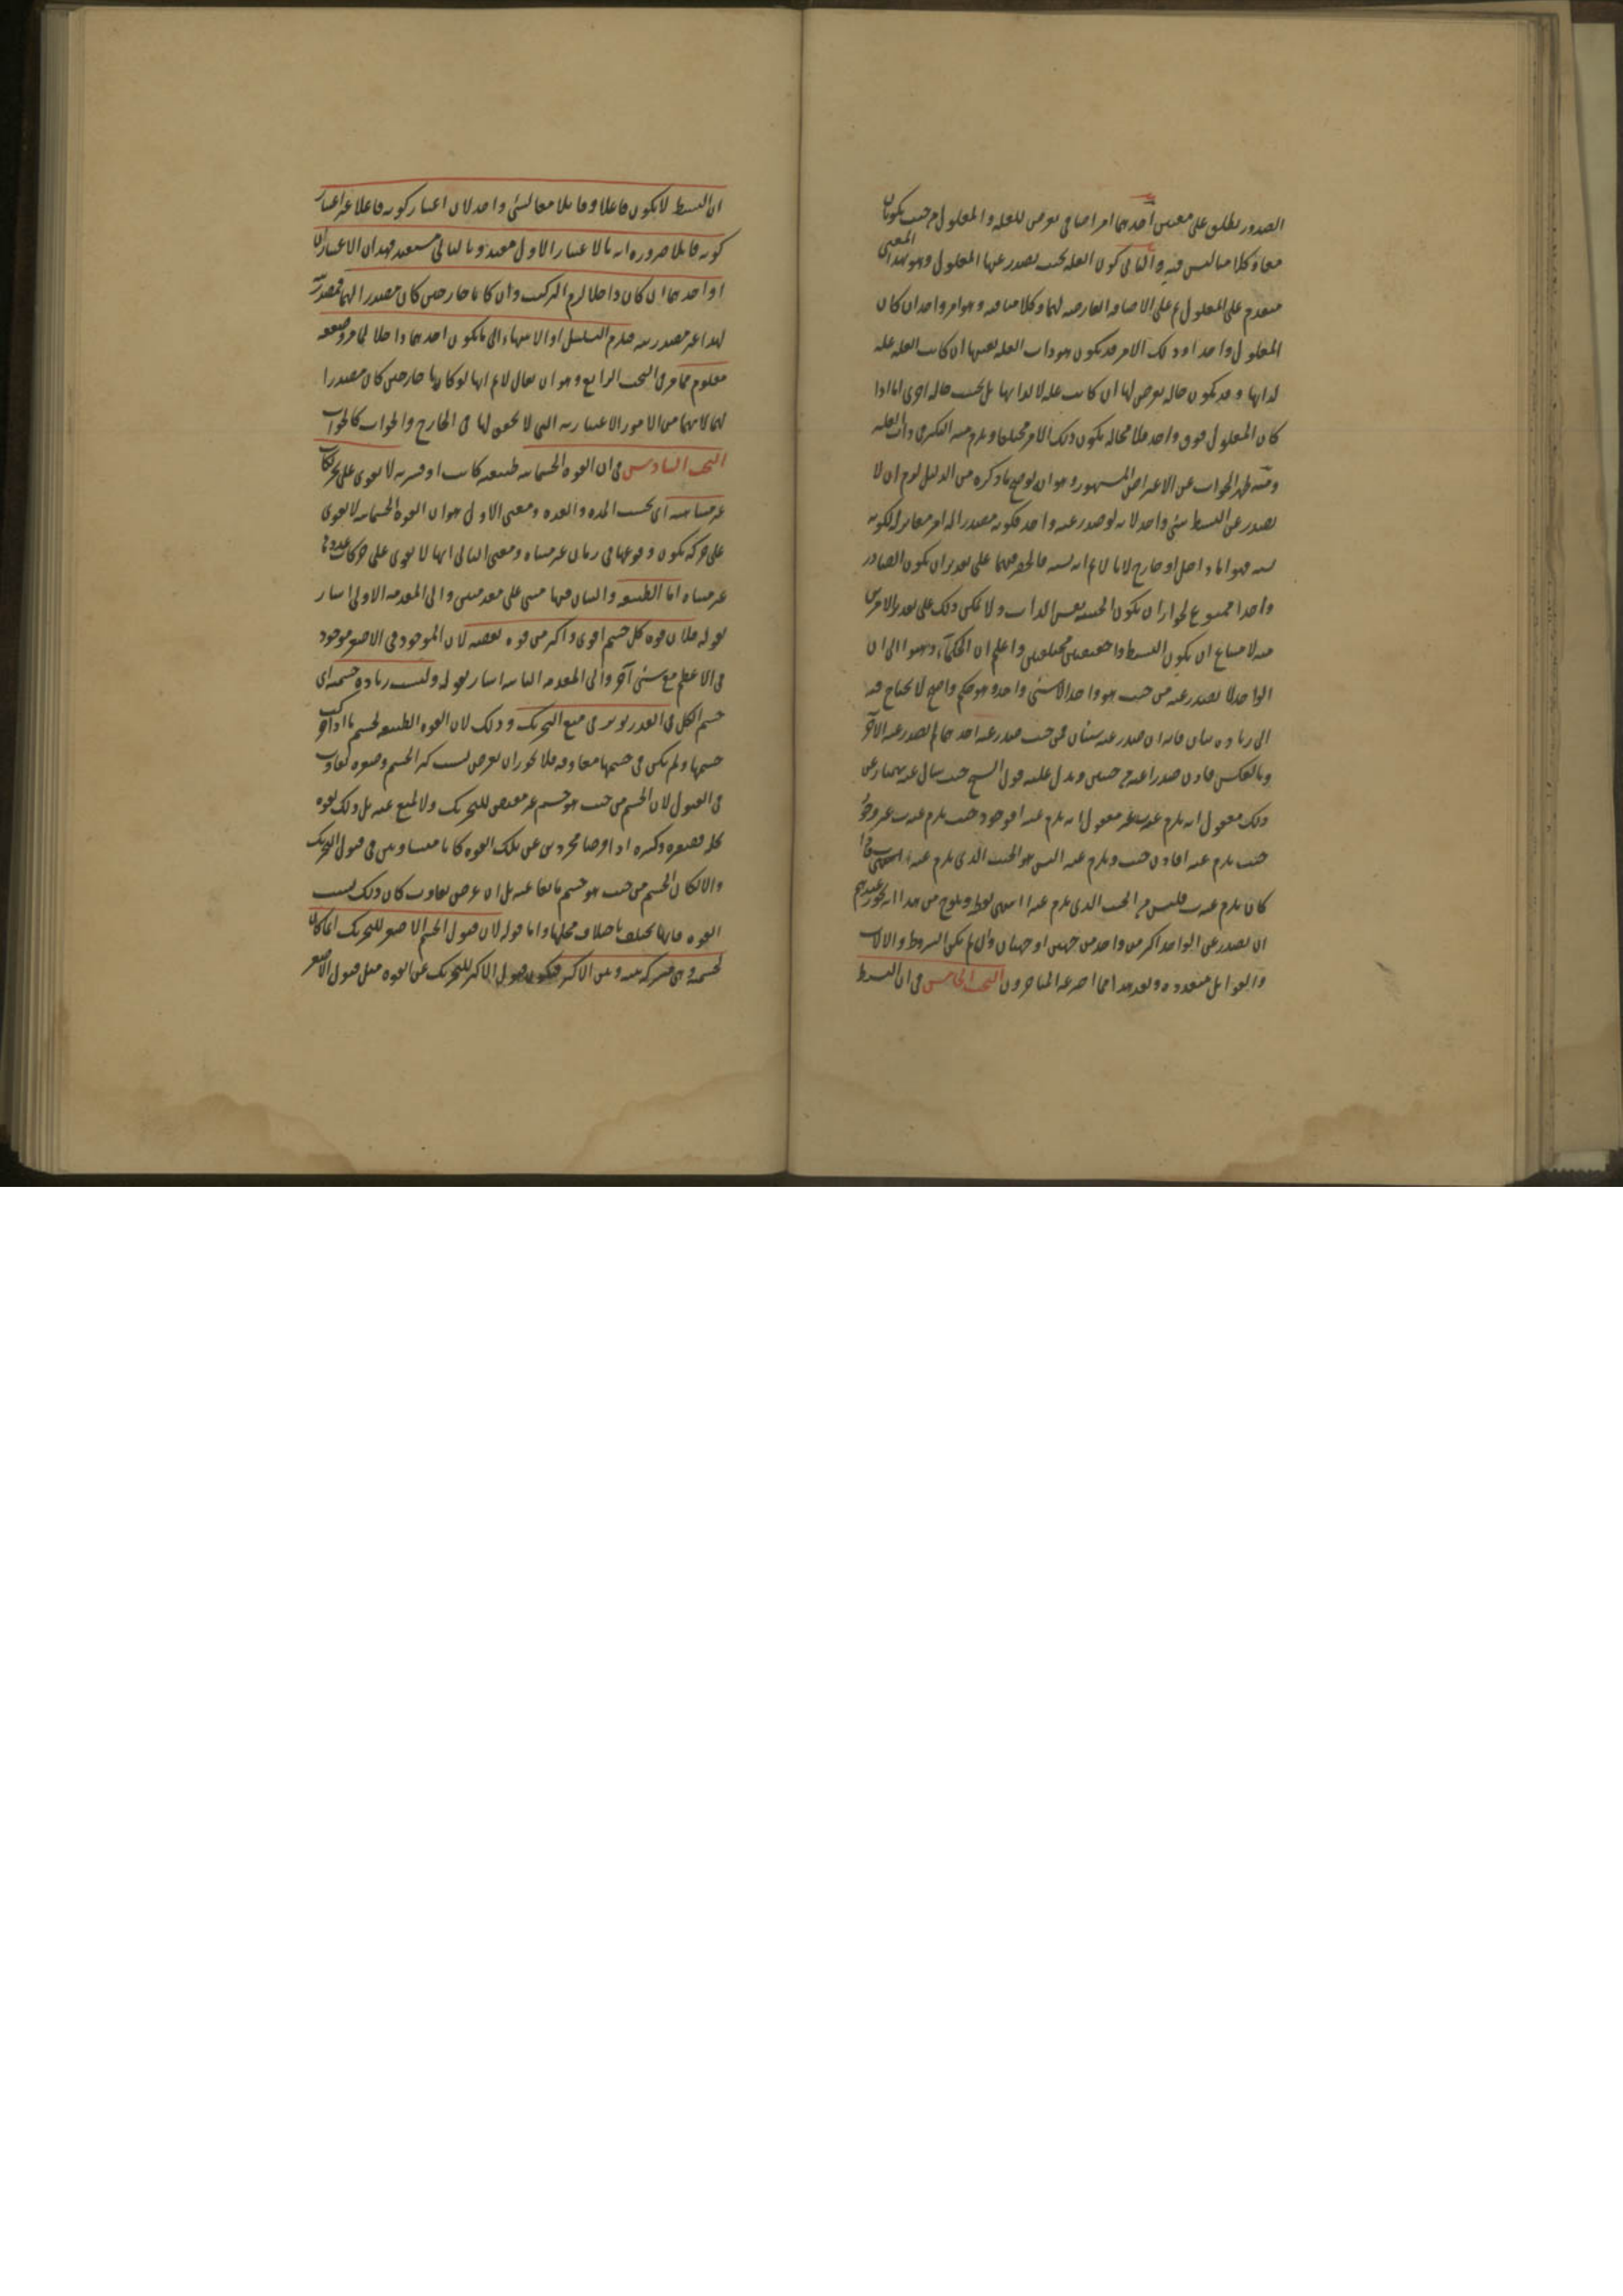 الصدور يطلق على معنيين احدهما امر اضافي يعرض للعلة والمعلول من حيث يكونان
معا وكلامنا ليس فيه والثاني كون العلة بحيث يصدر عنها المعلول وهو بهذا المعنى
متقدم على المعلول ثم على الاضافة العارضة لهما وكلامنا فيه وهو امر واحد ان كان
المعلول واحدا وذلك الامر قد يكون هو ذات العلة بعينها ان كانت العلة علة
لذاتها وقد يكون حالة تعرض لها ان كانت علة لا لذاتها بل بحسب حالة اخرى اما اذا
كان المعلول فوق واحد فلا محالة يكون ذلك الامر مختلفا ويلزم منه التكثر في ذات العلة
ومنه ظهر الجواب عن الاعتراض المشهور وهو انه لو صح ما ذكره من الدليل لزم ان لا
يصدر عن البسيط شئ واحد لانه لو صدر عنه واحد فكونه مصدرا لذلك امر مغاير لكونه
فهو اما داخل او خارج لانا لانم انه فالحصر فيهما على تقدير ان يكون الصادر
واحدا ممنوع لجواز ان يكون الحيثية نفس الذات ولا يمكن ذلك على تقدير الاثنين
منه لامتناع ان يكون للبسيط حقيقتين مختلفتين واعلم ان الحكماء ذهبوا الى ان
الواحد لا يصدر عنه من حيث هو واحد الا شئ واحد وهو حكم واضح لا يحتاج فيه
الى زيادة بيان فانه ان صدر عنه شيئان فمن حيث صدر عنه احدهما لم يصدر عنه الآخر
وبالعكس فاذن صدرا عنه من حيثيتين ويدل عليه قول الشيخ حيث سأل عنه بهمنيار عن
ذلك معقول انه يلزم عنه ب غير معقول انه يلزم عنه ا فوجود حيث يلزم عنه ب غير وجود
حيث يلزم عنه ا فاذن حيث ويلزم عنه ب ليس هو الحيث الذي يلزم عنه ا
كان يلزم عنه ب فليس من الحيث الذي يلزم عنه ا انتهى لفظه ويلوح من هذا انه يجوز عندهم
ان يصدر عن الواحد اكثر من واحد من جهتين او جهات وان لم يكن الشروط والآلات
والقوابل متعددة وبعد هذا مما اخترعه المتاخرون البحث الخامس في ان البسيط
ان البسيط لا يكون فاعلا وقابلا معا لشئ واحد لان اعتبار كونه فاعلا غير اعتبار
كونه قابلا ضرورة انه بالاعتبار الاول مفيد وبالثاني مستفيد فهذان الاعتباران
او احدهما ان كان داخلا لزم التركيب وان كانا خارجين كان مصدرا لهما فمصدريته
لهذا غير مصدريته فيلزم التسلسل او الانتهاء الى ما يكون احدهما داخلا لما مر وضعفه
معلوم مما مر في البحث الرابع وهو ان يقال لانم انهما لو كانا خارجين كان مصدرا
لهما لانهما من الامور الاعتبارية التي لا تحقق لها في الخارج والجواب كالجواب
البحث السادس في ان القوة الجسمانية طبيعية كانت او قسرية لا تقوى على تحريكات
غير متناهية اي بحسب المدة والعدة ومعنى الاول هو ان القوة الجسمانية لا تقوى
على حركة يكون وقوعها في زمان غير متناه ومعنى الثاني انها لا تقوى على حركات عددها
غير متناه اما الطبيعية والبيان فيها مبني على مقدمتين والى المقدمة الاولى اشار
بقوله فلان قوة كل جسم اقوى واكثر من قوة بعضه لان الموجود في الاصغر موجود
في الاعظم مع شئ آخر والى المقدمة الثانية اشار بقوله وليست زيادة جسمه اي
جسم الكل في القدر يؤثر في منع التحريك وذلك لان القوة الطبيعية لجسم ما اذا حركت
جسمها ولم يكن في جسمها معاوقة فلا يجوز ان يعرض بسبب كبر الجسم وصغره تفاوت
في القبول لان الجسم من حيث هو جسم غير مقتض للتحريك ولا لمنع عنه بل ذلك لقوة
تحله فصغيره وكبيره اذا فرضا مجردين عن تلك القوة كانا متساويين في قبول التحريك
والا لكان الجسم من حيث هو جسم مانعا عنه بل ان عرض تفاوت كان ذلك بسبب
القوة فانها تختلف باختلاف محلها واما قوله لان قبول الجسم الاصغر للتحريك انما كان
لجسميته وهي مشتركة بينه وبين الاكبر فيكون قبول الاكبر للتحريك عن القوة مثل قبول الاصغر